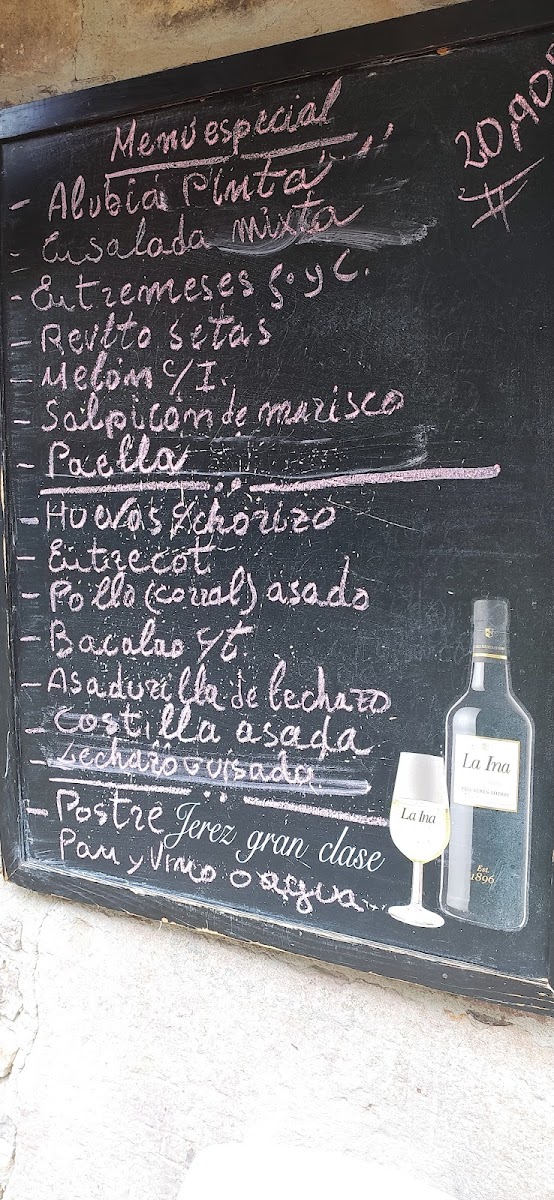 Menú especial
20,90
- Alubia Pinta
- Ensalada mixta
- Entremeses F. y C.
- Revlto setas
- Melón c/J.
- Salpicón de marisco
- Paella
- Huevos c/chorizo
- Entrecot
- Pollo (corral) asado
- Bacalao c/t.
- Asadurilla de lechazo
- Costilla asada
- Lechazo Guisado
- Postre
Pan y Vino o agua
Jerez gran clase
La Ina
La Ina
Est.
1896